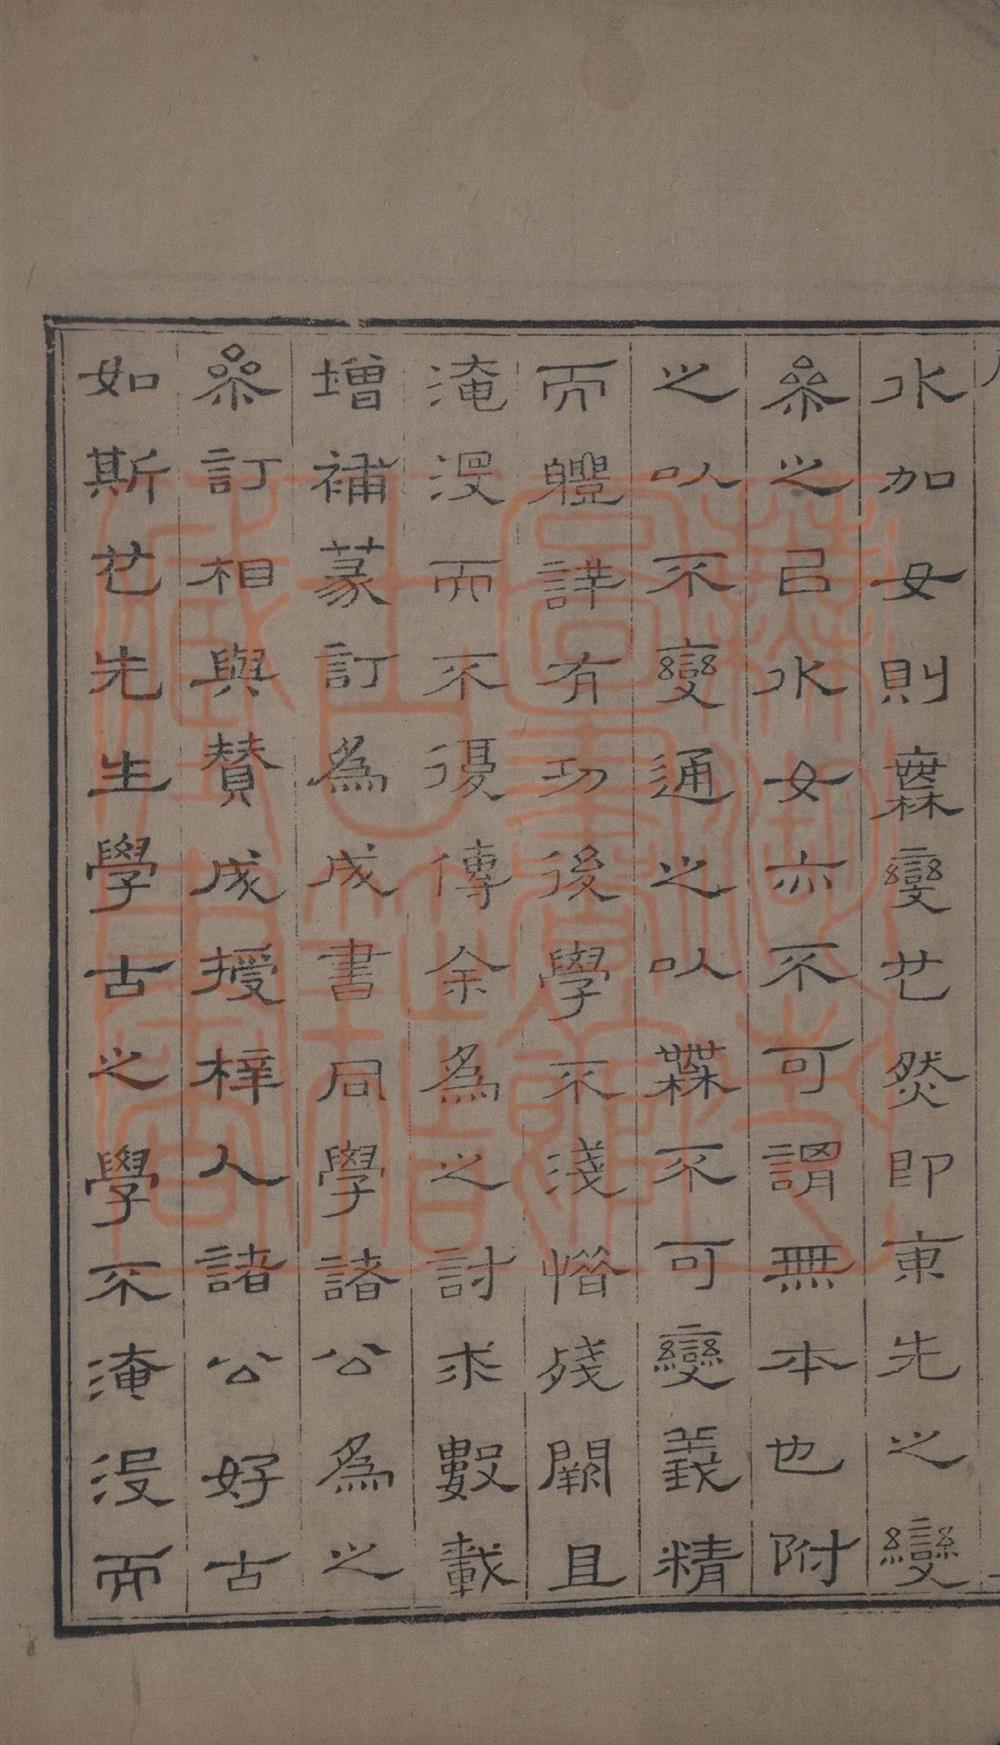 水加女則霖變也然即東先之變
參之已水女亦不可謂無本也附
之以不變通之以霖不可變義精
而體詳有功後學不淺惜殘闕且
淹沒而不復傳余為之討求數載
增補篆訂為成書同學諸公為之
參訂相與贊成授梓人諸公好古
如斯也先生學古之學不淹沒而